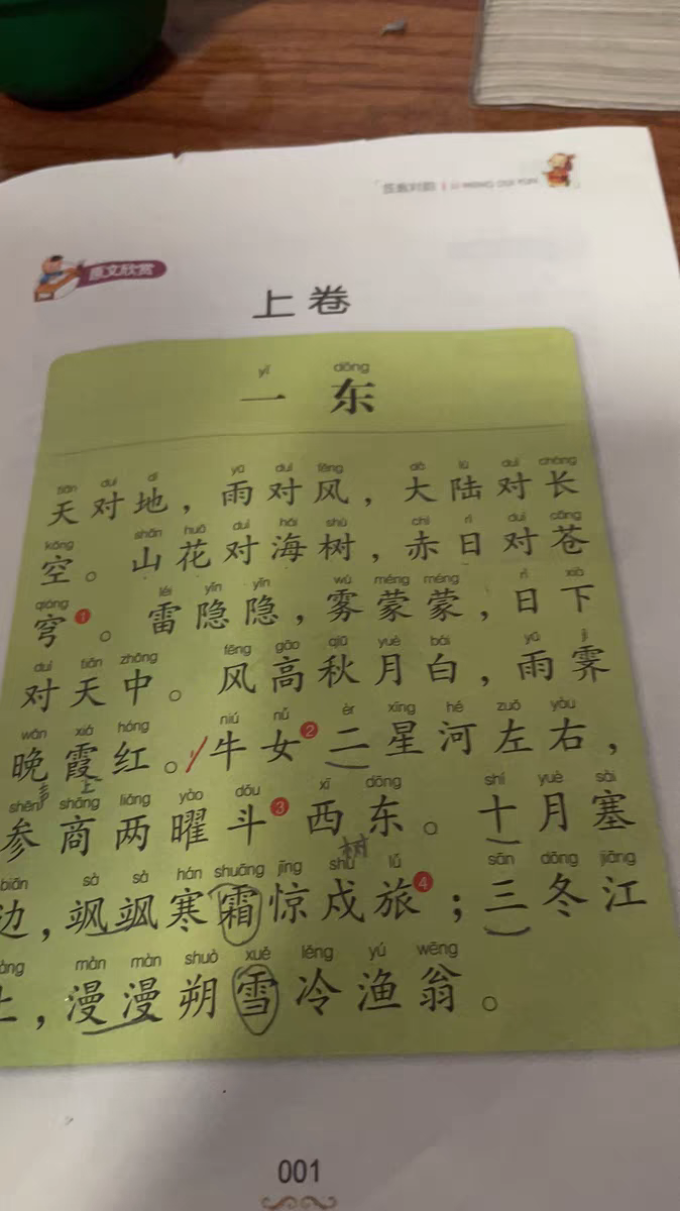 笠翁对韵 LI WENG DUI YUN
原文欣赏
上卷
yī dōng
一 东
tiān duì dì yǔ duì fēng dà lù duì cháng
天对地，雨对风，大陆对长
kōng shān huā duì hǎi shù chì rì duì cāng
空。山花对海树，赤日对苍
qióng léi yǐn yǐn wù méng méng rì xià
穹❶。雷隐隐，雾蒙蒙，日下
duì tiān zhōng fēng gāo qiū yuè bái yǔ jì
对天中。风高秋月白，雨霁
wǎn xiá hóng niú nǚ èr xīng hé zuǒ yòu
晚霞红。牛女❷二星河左右，
shēn shāng liǎng yào dǒu xī dōng shí yuè sài
参商两曜斗❸西东。十月塞
biān sà sà hán shuāng jīng shù lǚ sān dōng jiāng
边，飒飒寒霜惊戍旅❹；三冬江
màn màn shuò xuě lěng yú wēng
上，漫漫朔雪冷渔翁。
001